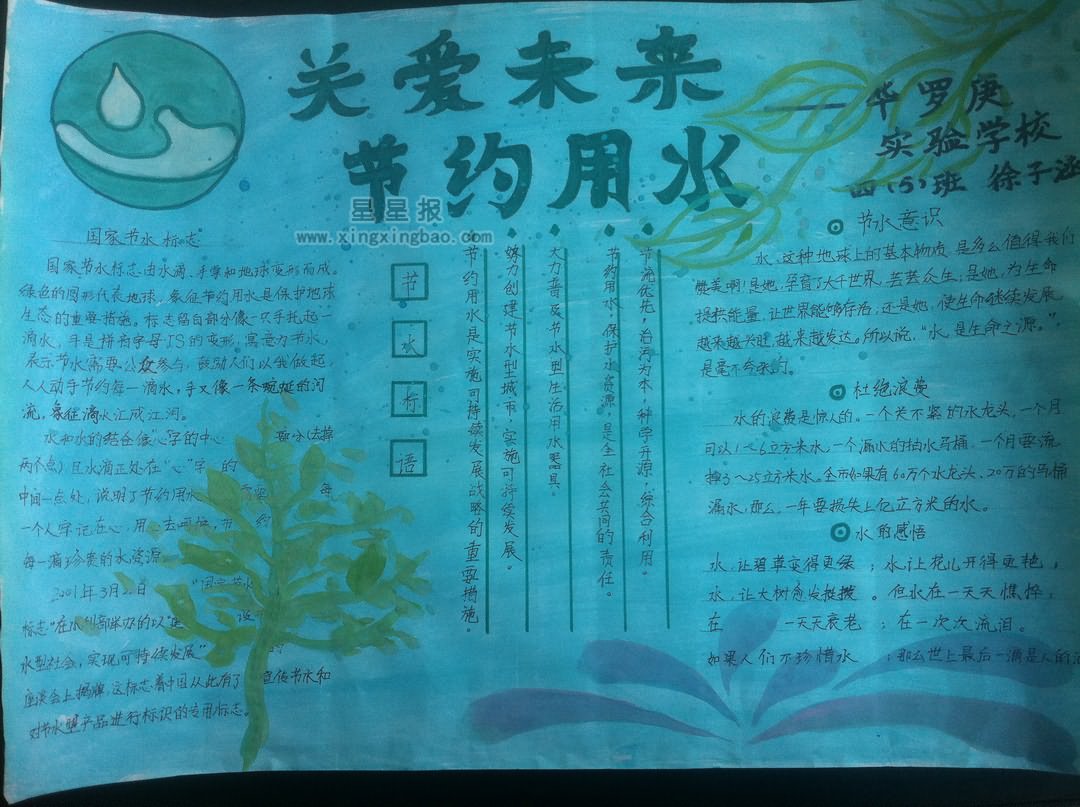 关爱未来
节约用水
——华罗庚
实验学校
四(5)班 徐子涵
星星报
www.xingxingbao.com
国家节水标志
国家节水标志由水滴、手掌和地球变形而成。
绿色的圆形代表地球，象征节约用水是保护地球
生态的重要措施。标志留白部分像一只手托起一
滴水，手是拼音字母JS的变形，寓意为节水，
表示节水需要公众参与，鼓励人们从我做起，
人人动手节约每一滴水，手又像一条蜿蜒的河
流，象征滴水汇成江河。
水和水的结合像心字的中心 部分(去掉
两个点)，且水滴正处在“心”字 的
中间一点处，说明了节约用水 需 每
一个人牢记在心，用心去呵护，节 约
每一滴珍贵的水资源。
2001年3月2日 “国家节水
标志”在水利部举办的以“建 设节
水型社会，实现可持续发展” 的
座谈会上揭牌，这标志着中国从此有了 宣传节水和
对节水型产品进行标识的专用标志。
节
水
标
语
节约用水是实施可持续发展战略的重要措施。
努力创建节水型城市，实施可持续发展。
大力普及节水型生活用水器具。
节约用水、保护水资源，是全社会共同的责任。
节流优先，治污为本，科学开源，综合利用。
节水意识
水，这种地球上的基本物质，是多么值得我们
赞美啊！是她，孕育了大千世界，芸芸众生；是她，为生命
提供能量，让世界能够存活；还是她，使生命继续发展，
越来越兴旺，越来越发达。所以说，“水，是生命之源。”，
是毫不夸张的。
杜绝浪费
水的浪费是惊人的。一个关不紧的水龙头，一个月
可以1~6立方米水，一个漏水的抽水马桶，一个月要流
掉3~25立方米水。全市如果有60万个水龙头、20万的马桶
漏水，那么，一年要损失上亿立方米的水。
水的感悟
水，让碧草变得更绿；水让花儿开得更艳，
水，让大树愈发挺拔。但水在一天天憔悴；
在 一天天衰老；在一次次流泪。
如果人们不珍惜水；那么世上最后一滴是人的